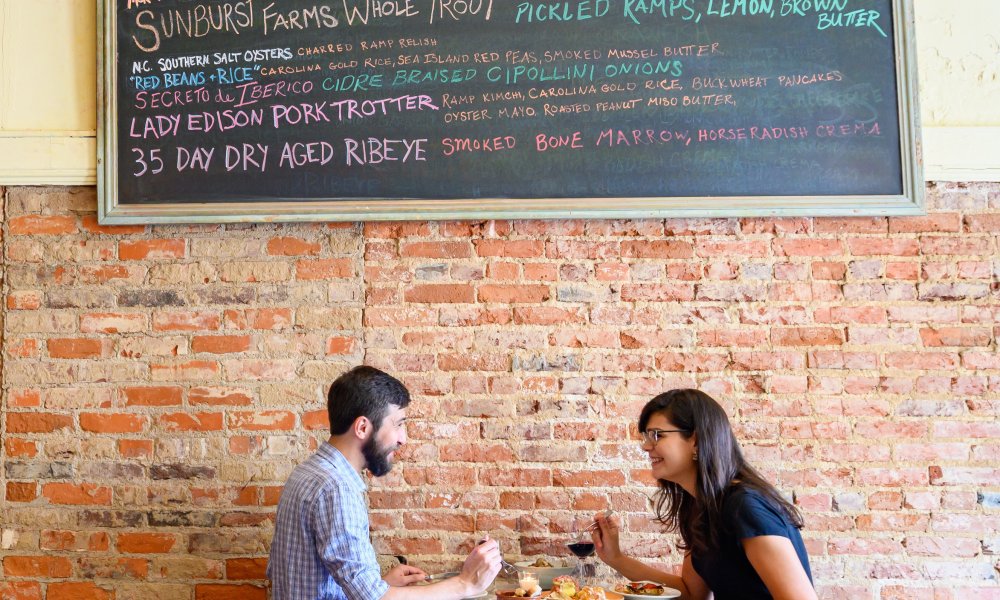 Sunburst Farms Whole Trout PICKLED RAMPS, LEMON, BROWN BUTTER
N.C. SOUTHERN SALT OYSTERS CHARRED RAMP RELISH
"RED BEANS + RICE" CAROLINA GOLD RICE, SEA ISLAND RED PEAS, SMOKED MUSSEL BUTTER,
SECRETO de IBERICO CIDRE BRAISED CIPOLLINI ONIONS
LADY EDISON PORK TROTTER RAMP KIMCHI, CAROLINA GOLD RICE, BUCKWHEAT PANCAKES
OYSTER MAYO, ROASTED PEANUT MISO BUTTER,
35 DAY DRY AGED RIBEYE SMOKED BONE MARROW, HORSERADISH CREMA